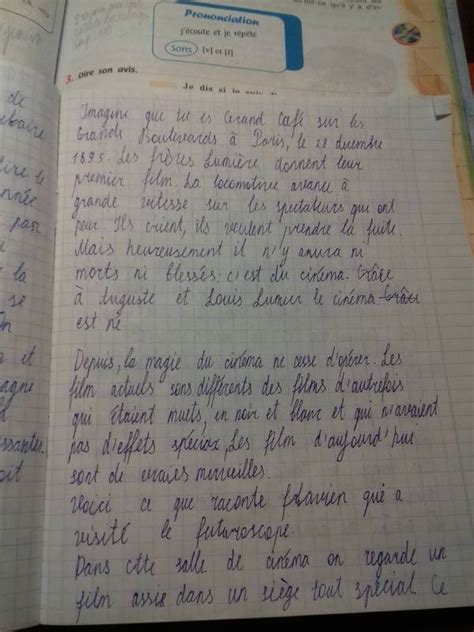 Prononciation
j'écoute et je répète
Sons [v] et [f]
3. Dire son avis.
Je dis si je suis d'
Imagine que tu es Grand Café sur les
Grands Boulevards à Paris, le 28 decembre
1895. Les frères Lumière donnent leur
premier film. La locomotive avance à
grande vitesse sur les spectateurs qui ont
peur. Ils crient, ils veulent prendre la fuite.
Mais heureusement il n'y aura ni
morts ni blessés: c'est du cinéma. Grâce
à Auguste et Louis Lumur le cinéma Grâce
est né.
Depuis, la magie du cinéma ne cesse d'opérer. Les
film actuels sons differents des films d'autrefois
qui étaient muets, en noir et blanc et qui n'avaient
pas d'effets spéciax, Les film d'aujourd'hui
sont de vraies merveilles.
Voici ce que raconte Flavien qué a
visité le futuroscope.
Dans cette salle de cinéma on regarde un
film assis dans un siège tout spécial. Ce